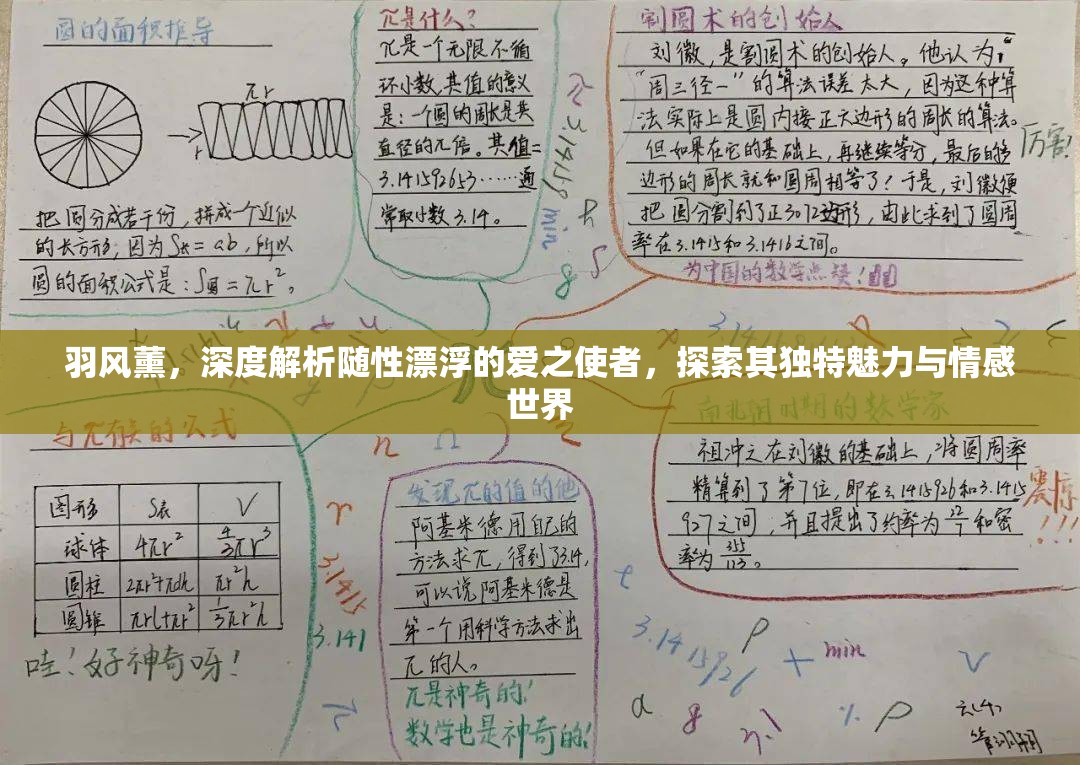 圆的面积推导
πr
r
把圆分成若干份，拼成一个近似
的长方形；因为S长=ab，所以
圆的面积公式是：S圆=πr²。
π是什么？
π是一个无限不循
环小数，其值的意义
是：一个圆的周长是其
直径的π倍。其值=
3.141592653……通
常取小数3.14。
π 3.14159 min
割圆术的创始人
刘徽，是割圆术的创始人。他认为：
“周三径一”的算法误差太大，因为这种算
法实际上是圆内接正六边形的周长的算法。
但如果在它的基础上，再继续等分，最后的多
边形的周长就和圆周相等了！于是，刘徽便
把圆分割到了正3072边形，由此求到了圆周
率在3.1415和3.1416之间。
厉害！
为中国的数学点赞！
羽风薰，深度解析随性漂浮的爱之使者，探索其独特魅力与情感
世界
与π有关的公式
图形 S表 V
球体 4πr² 4/3πr³
圆柱 2πr²+πdh πr²h
圆锥 πrl+πr² 1/3πr²h
哇！好神奇呀！
n Ω
r
3.1415
3.141
π
发现π的值的他
阿基米德用自己的
方法求π，得到了3.14，
可以说阿基米德是
第一个用科学方法求出
π的人。
π是神奇的！
数学也是神奇的！
南北朝时期的数学家
祖冲之在刘徽的基础上，将圆周率
精算到了第7位，即在3.1415926和3.1415
927之间，并且提出了约率为22/7和密
率为355/113。
震惊！！！
t
3.1415926
ρ + min V
a g % ρ